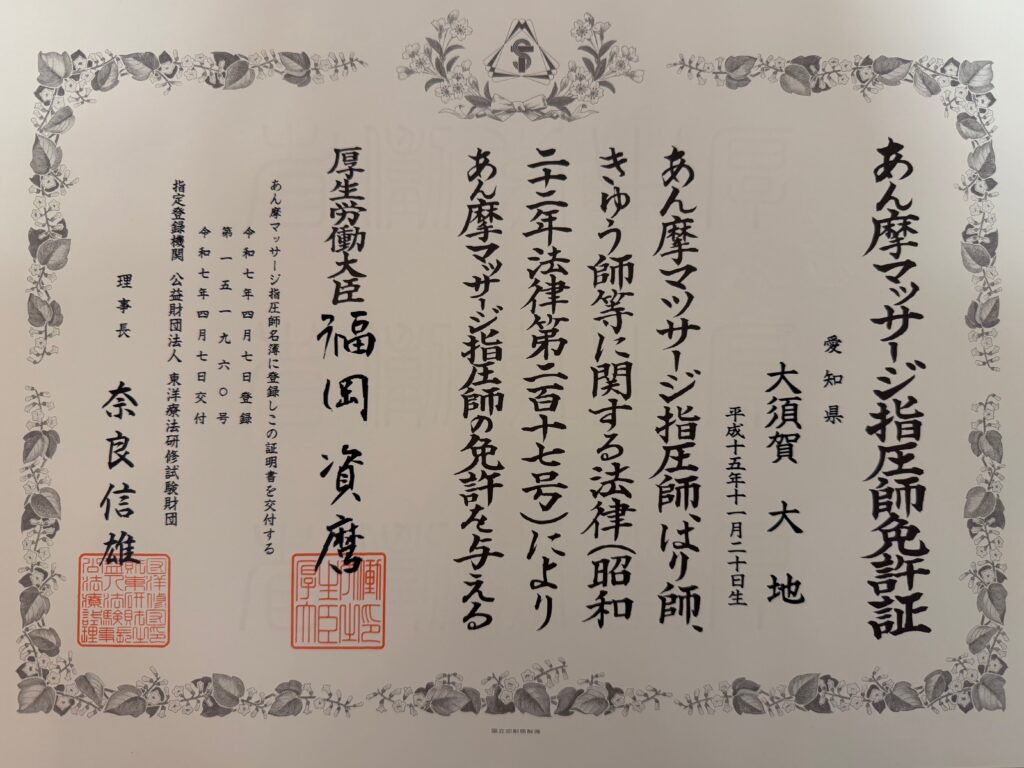 あん摩マッサージ指圧師免許証
愛知県
大須賀 大地
平成十五年十一月二十日生
あん摩マッサージ指圧師、はり師、
きゆう師等に関する法律(昭和
二十二年法律第二百十七号)により
あん摩マッサージ指圧師の免許を与える
厚生労働大臣 福岡資麿
あん摩マッサージ指圧師名簿に登録しこの証明書を交付する
令和七年四月七日登録
第一五一一九六〇号
令和七年四月七日交付
指定登録機関 公益財団法人 東洋療法研修試験財団
理事長 奈良信雄